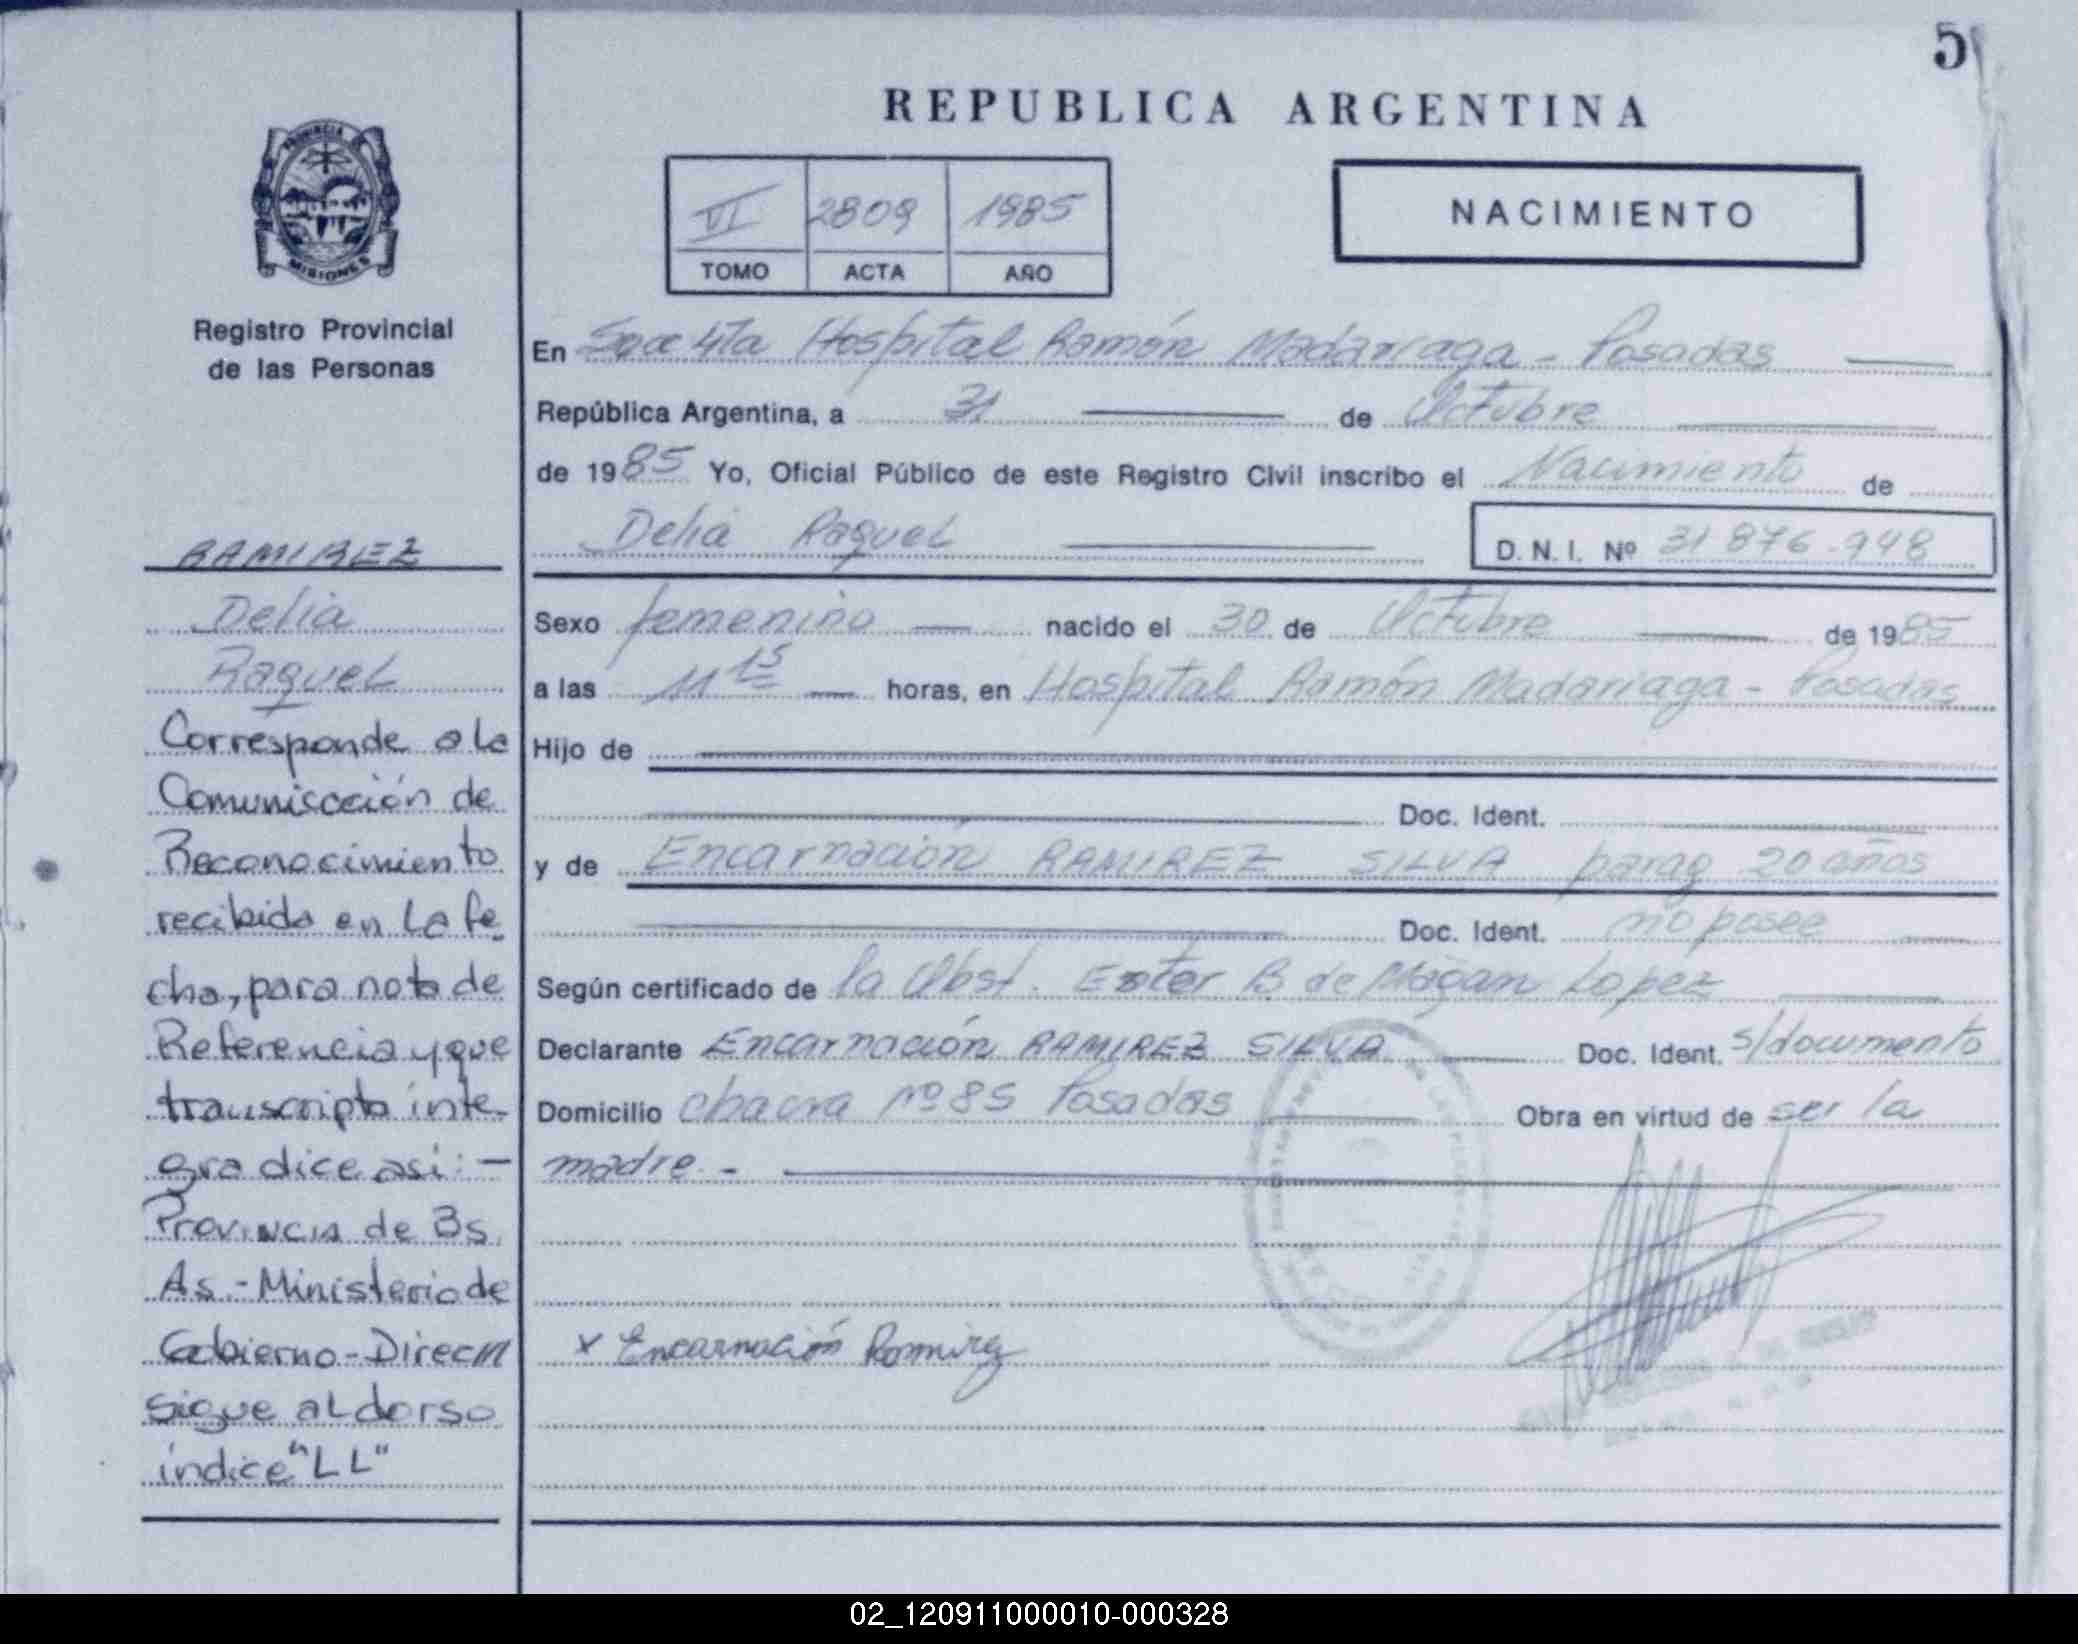 5
REPUBLICA ARGENTINA
PROVINCIA DE
MISIONES
Registro Provincial
de las Personas
VI 2809 1985
TOMO ACTA AÑO
NACIMIENTO
En Secc 4ta Hospital Ramón Madariaga - Posadas
República Argentina, a 31 de Octubre
de 1985 Yo, Oficial Público de este Registro Civil inscribo el Nacimiento de
Delia Raquel D. N. I. Nº 31 876.948
Sexo femenino nacido el 30 de Octubre de 1985
a las 11 15 horas, en Hospital Ramón Madariaga - Posadas
Hijo de
Doc. Ident.
y de Encarnación RAMIREZ SILVA parag 20 años
Doc. Ident. no posee
Según certificado de la Obst. Ester B de Magan Lopez
Declarante Encarnación RAMIREZ SILVA Doc. Ident. s/documento
Domicilio chacra nº 85 Posadas Obra en virtud de ser la
madre. -
x Encarnación Ramirez
RAMIREZ
Delia
Raquel
Corresponde a la
Comunicación de
Reconocimiento
recibida en la fe
cha, para nota de
Referencia y que
transcripta inte-
gra dice asi: -
Provincia de Bs.
As. - Ministerio de
Gobierno - Direcn
sigue al dorso
indice "LL"
02_120911000010-000328